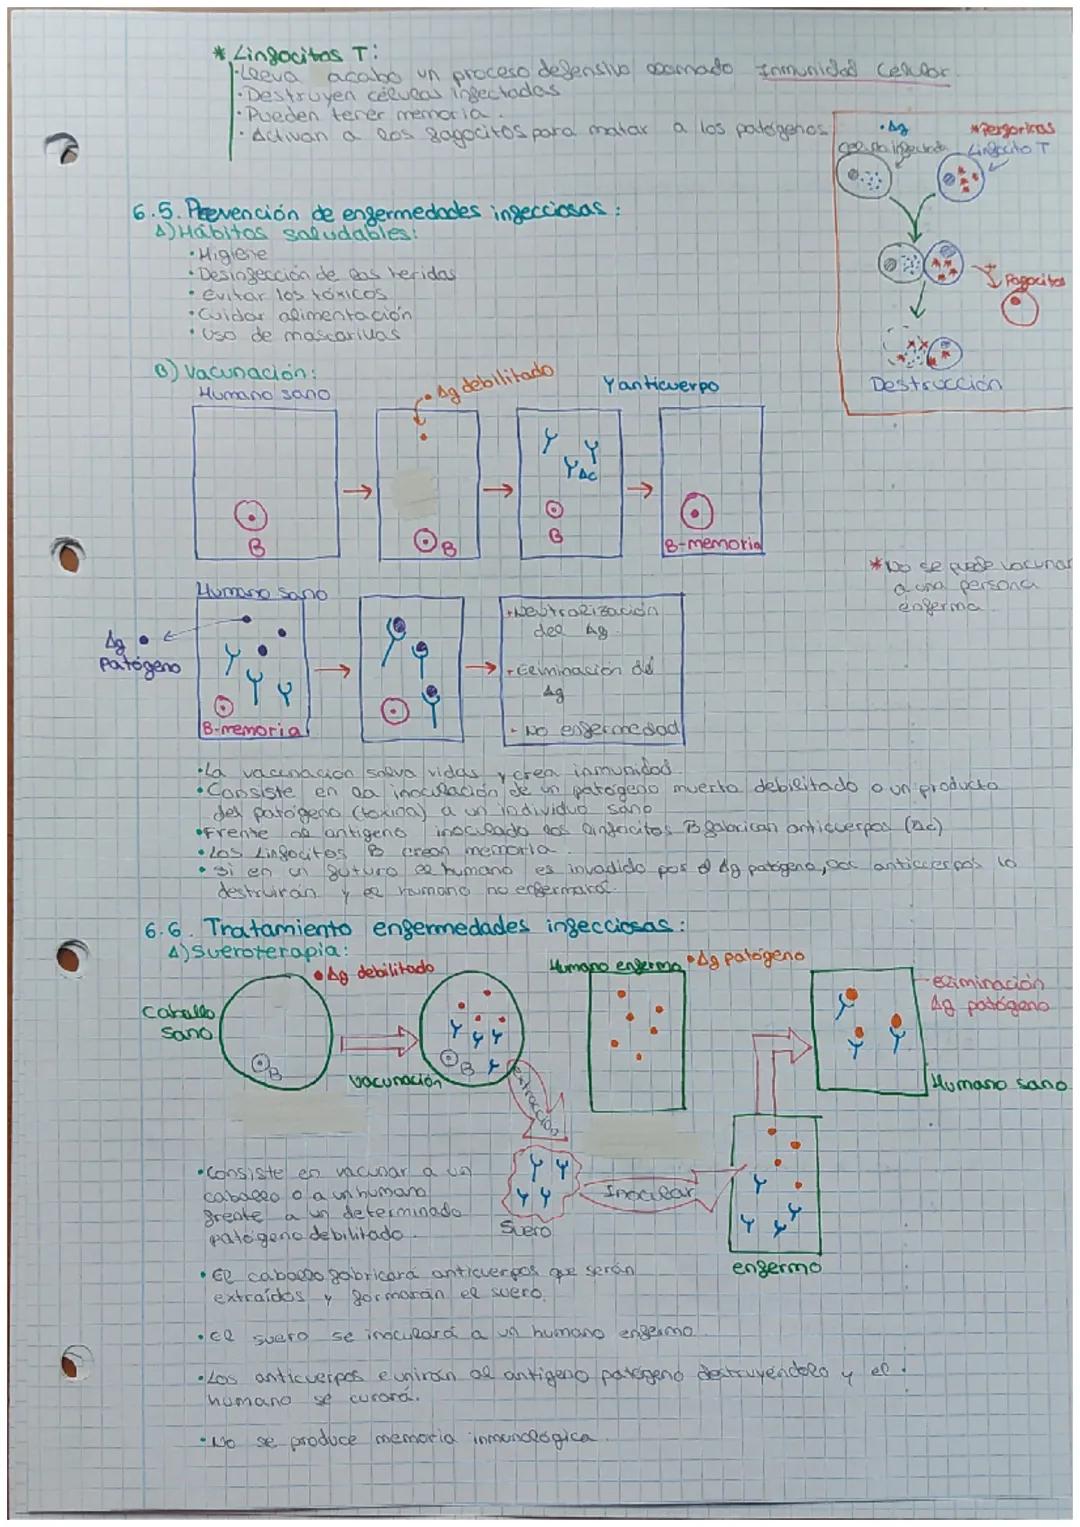 * Linfocitos T:
• Lleva acabo un proceso defensivo llamado Inmunidad Celular.
• Destruyen células infectadas
• Pueden tener memoria.
• Activan a los fagocitos para matar a los patógenos
• Ag
* Perforinas
Célula infectada
Linfocito T
Fagocitos
Destrucción
6.5. Prevención de enfermedades infecciosas:
A) Hábitos saludables:
• Higiene
• Desinfección de las heridas
• Evitar los tóxicos
• Cuidar alimentación
• Uso de mascarillas
B) Vacunación:
Humano sano
• Ag debilitado
Y anticuerpo
B
B
Ac
B
B-memoria
* No se puede vacunar
a una persona
enferma
Humano sano
Ag •
Patógeno
B-memoria
• Neutralización
del Ag.
• Eliminación del
Ag
• No enfermedad
• La vacunación salva vidas y crea inmunidad.
• Consiste en la inoculación de un patógeno muerto debilitado o un producto
del patógeno (toxina) a un individuo sano
• Frente al antígeno inoculado los linfocitos B fabrican anticuerpos (Ac)
• Los Linfocitos B crean memoria.
• Si en un futuro el humano es invadido por el Ag patógeno, los anticuerpos lo
destruirán y el humano no enfermará.
6.6. Tratamiento enfermedades infecciosas:
A) Sueroterapia:
• Ag debilitado
Humano enfermo
• Ag patógeno
Caballo
sano
B
Vacunación
B
extracción
Eliminación
Ag patógeno
Humano sano
• Consiste en vacunar a un
caballo o a un humano
frente a un determinado
patógeno debilitado.
Suero
Inocular
enfermo
• El caballo fabricará anticuerpos que serán
extraídos y formarán el suero.
• El suero se inoculará a un humano enfermo.
• Los anticuerpos e unirán al antígeno patógeno destruyéndolo y el
humano se curará.
• No se produce memoria inmunológica.